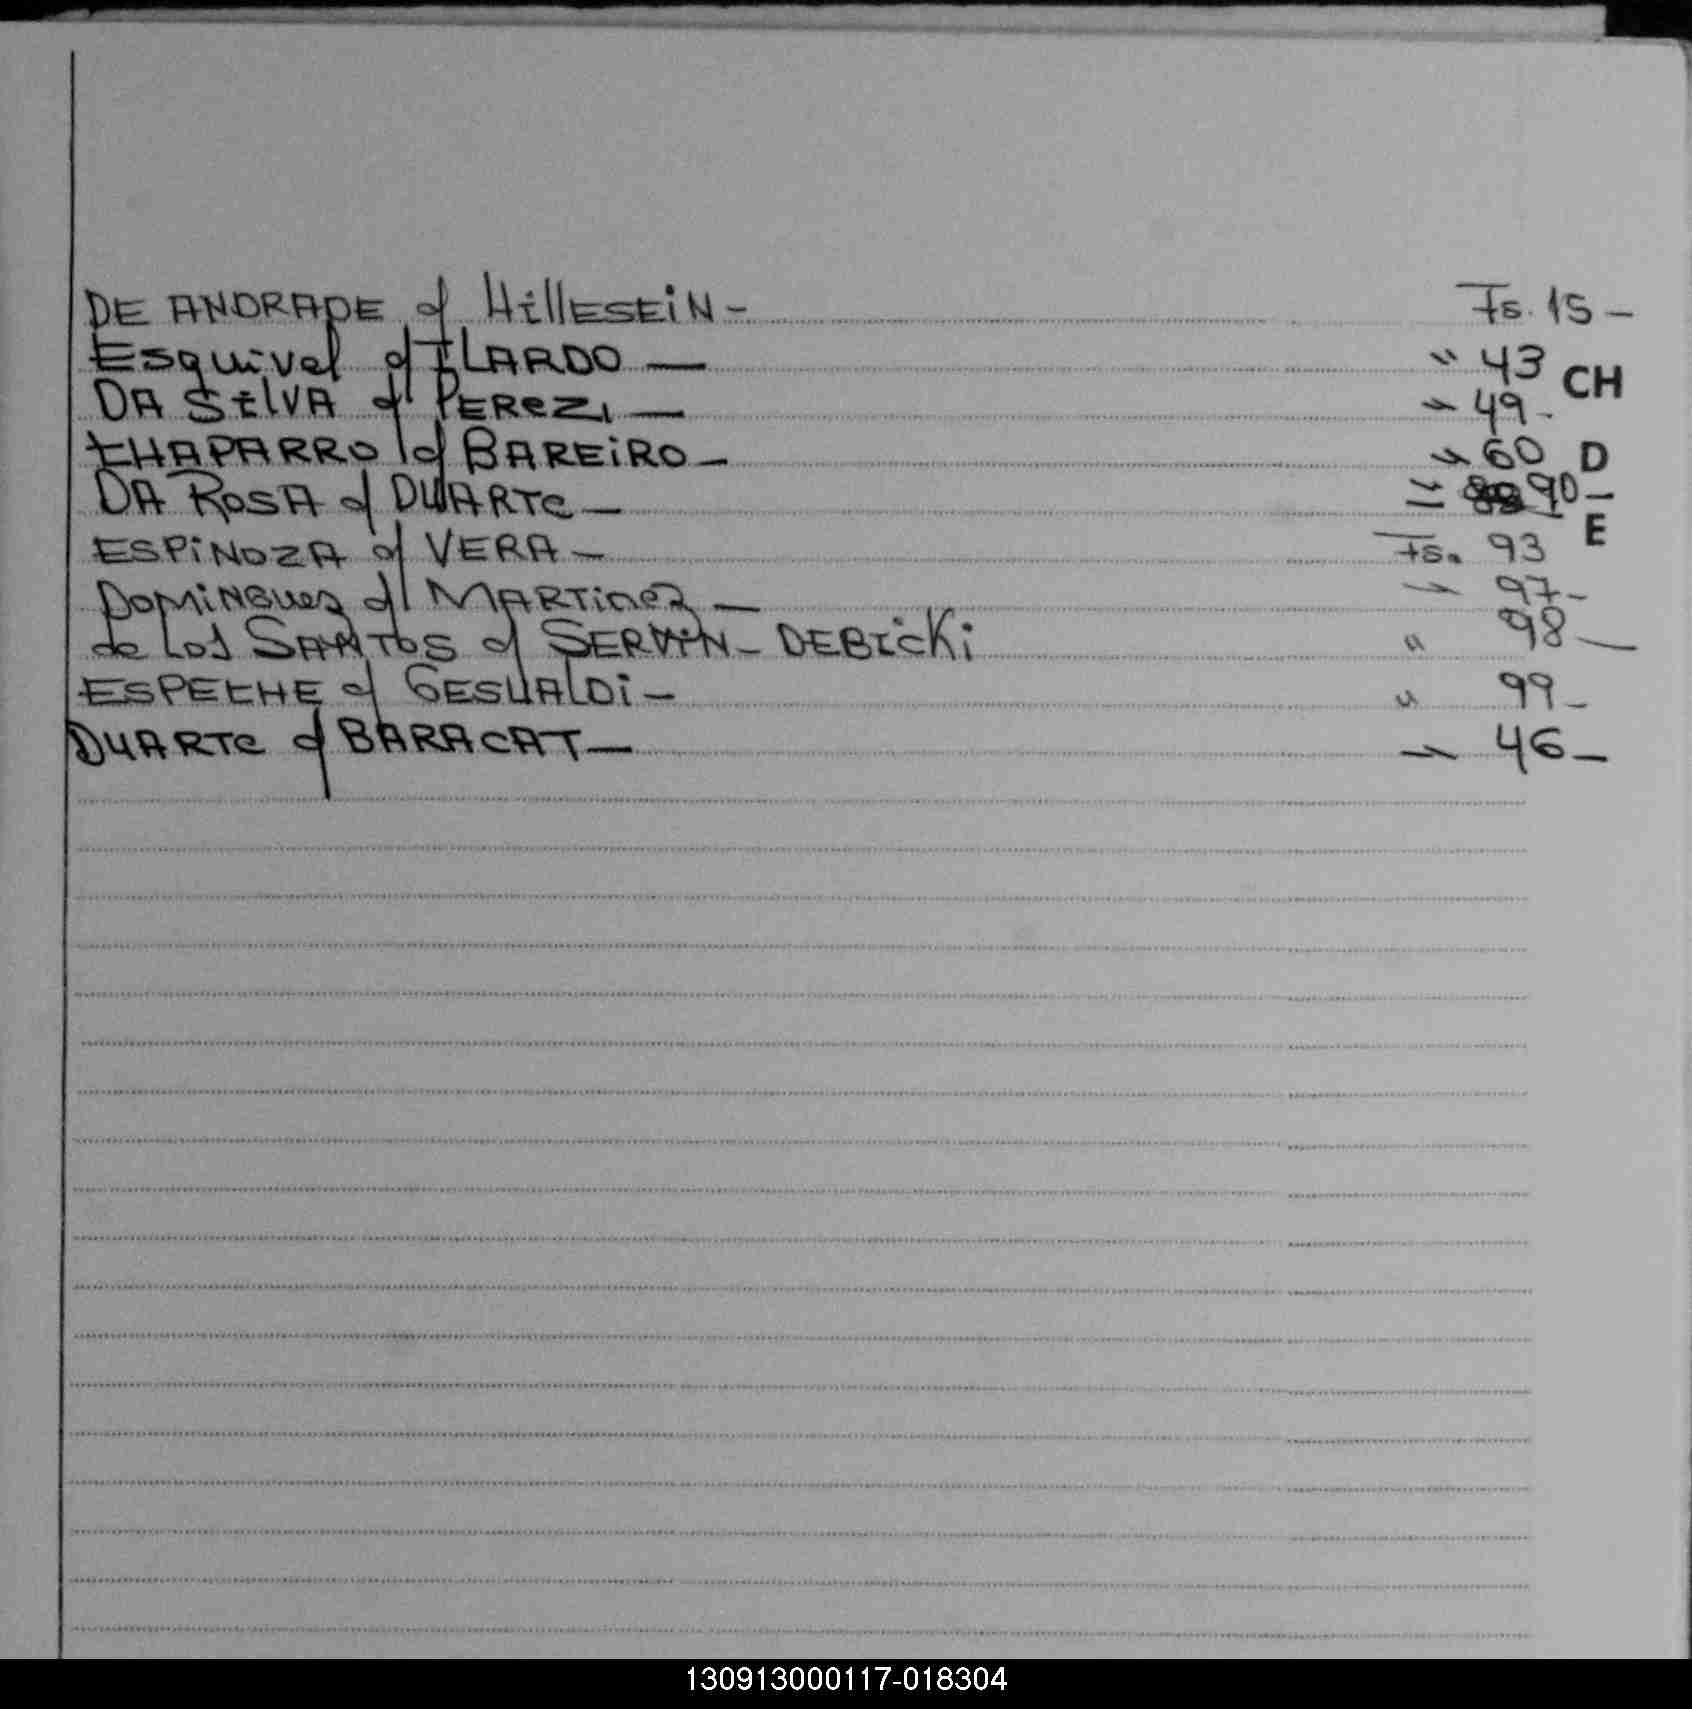 DE ANDRADE c/ HillESEiN - Fs. 15 -
Esquivel c/ ILARDO — " 43
CH
DA SilVA c/ PEREZ, — " 49 -
CHAPARRO c/ BAREiRO - " 60
D
DA ROSA c/ DUARTE - " 90 -
E
ESPiNOZA c/ VERA - Fs. 93
DOMiNGuez c/ MARTinez — " 97 -
de Los SANTOS c/ SERViN - DEBICKi " 98 —
ESPECHE c/ GESUAlDi - " 99 -
DUARTE c/ BARACAT — " 46 -
130913000117-018304